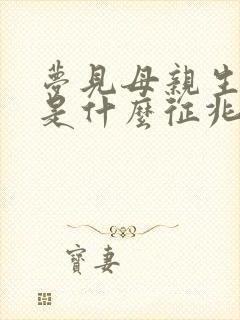 夢見母親生
是什麼征兆
寶妻